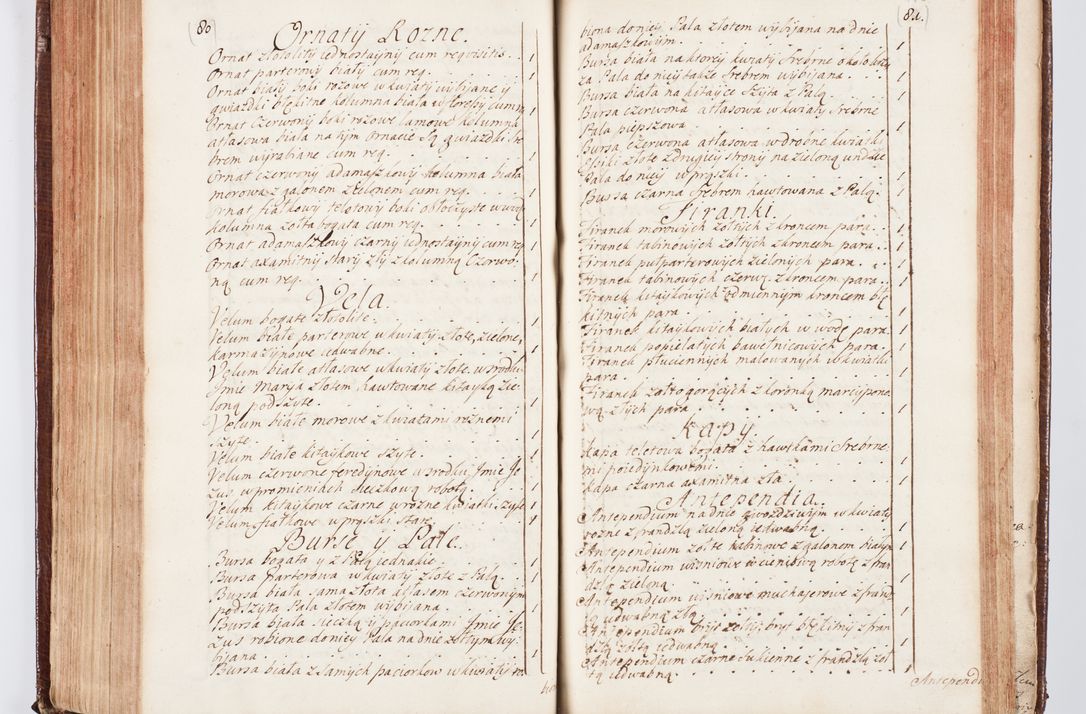 80
Ornaty Rozne.
Ornat złotolity iednostayny cum requisitis. 1
Ornat parterowy biały cum req. 1
Ornat biały boki rozowe w kwiaty wybijane y
gwiazdki błękitne kolumna biała w floresy cum req 1
Ornat Czerwony boki rozowe lamowe kolumna
atłasowa biała na tym Ornacie są gwiazdki sre
brem wyrabiane cum req. 1
Ornat czerwony adamaszkowy kolumna biała
morowa z galonem zielonem cum req. 1
Ornat fiałkowy teletowy boki obłoczyste w wodę
kolumna zołta bogata cum req. 1
Ornat adamaszkowy czarny iednostayny cum req 1
Ornat axamitny stary zły z kolumną Czerwo
ną cum req. 1
Vela.
Velum bogate złotolite. 1
Velum białe parterowe w kwiaty złote, zielone,
karmazynowe iedwabne. 1
Velum białe atłasowe w kwiaty złote. w srodku
Jmie Marya złotem hawtowane kitayką zie
loną podszyte. 1
Velum białe morowe z kwiatami roznemi
szyte. 1
Velum białe kitaykowe szyte. 1
Velum czerwone feredynowe w srodku Jmie Je
zus w promieniach sieczkową robotą. 1
Velum kitaykowe czarne w rozne kwiatki szyte 1
Velum fiałkowe w pryszki stare. 1
Burse y Pale.
Bursa bogata y z Palą iednakie. 1
Bursa parterowa w kwiaty złote z Palą. 1
Bursa biała sama złota atłasem czerwonym
podszyta Pala złotem wybijana. 1
Bursa biała sieczką y paciorkami Jmie Je:
zus robione do niey Pala na dnie złotym wy:
bijana. 1
Bursa biała z samych paciorkow w kwiaty ro
81.
biona do niey Pala złotem wybijana na dnie
adamaszkowym. 1
Bursa biała na ktorey kwiaty srebrne okolo
za. Pala do niey także srebrem wybijana. 1
Bursa biała na kitayce szyta z Palą. 1
Bursa czerwona atłasowa w kwiaty srebrne
Pala 1
Bursa czerwona atłasowa w drobne kwiatki
złote z drugiey strony na zieloną
Pala do niey w pryszki. 1
Bursa czarna srebrem hawtowana z Palą. 1
Firanki.
Firanek morowych zołtych z kroncem para. 1
Firanek tabinowych zołtych z kroncem para. 1
Firanek pułparterowych zielonych para. 1
Firanek tabinowych czerw. z kroncem para. 1
Firanek kitaykowych odmiennym kroncem błę
kitnych para. 1
Firanek kitaykowych białych w wodę para. 1
Firanek popielatych bawełnicowych para. 1
Firanek płuciennych malowanych w kwiatki
para. 1
Firanek zołtogorących z koronką marcypono
wą złych para. 1
Kapy.
Kapa teletowa bogata z hawtkami srebrne
mi poiedynkowemi. 1
Kapa czarna axamitna zła. 1
Antependia.
Antependium na dnie gwozdzistym w kwiaty
rozne z frandzlą zieloną iedwabną. 1
Antependium zołte tabinowe z galonem białym 1
Antependium wisniowe w robotę z fran
dzlą zieloną. 1
Antependium wisniowe muchajerowe z frand
zlą iedwabną złą. 1
Antependium bryt zołty, bryt błękitny z fran
dzlą zołtą iedwabną. 1
Antependium czarne sukienne z frandzlą zoł
tą iedwabną. 1
Antependi